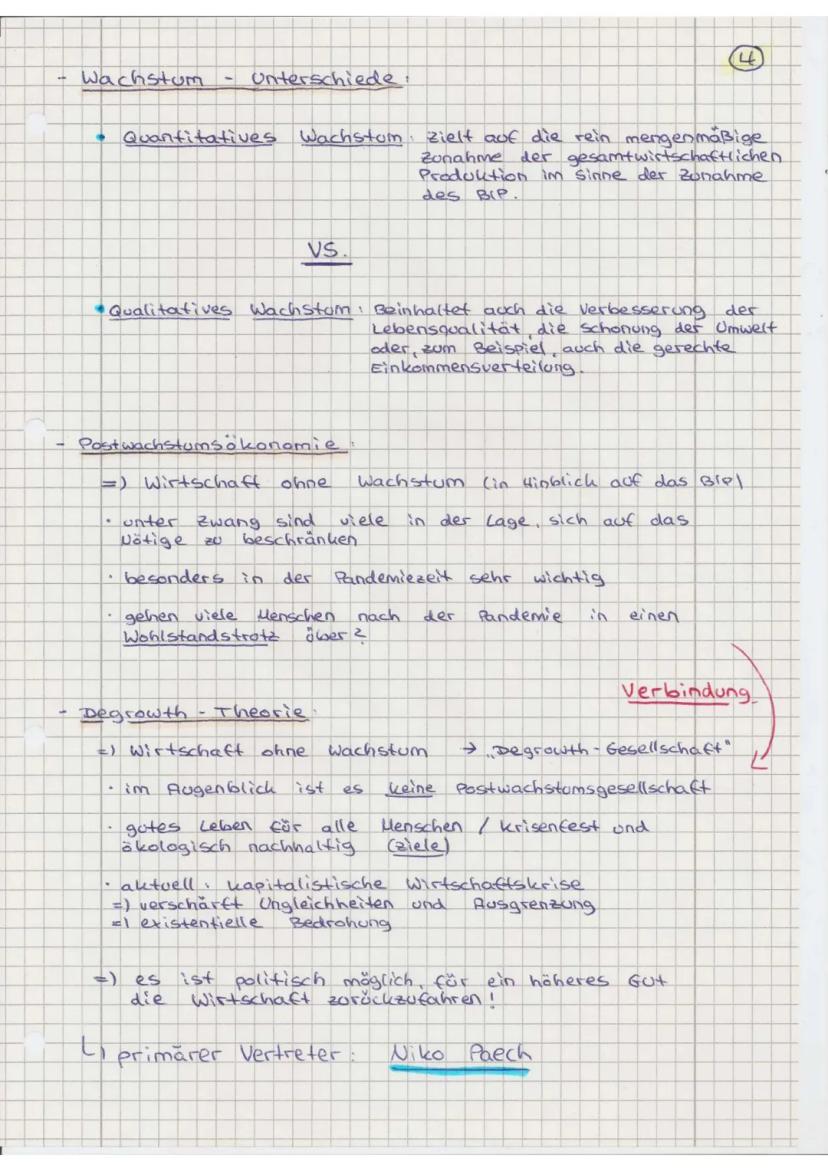 4
- Wachstum - Unterschiede:
• Quantitatives Wachstum: zielt auf die rein mengenmäßige
Zunahme der gesamtwirtschaftlichen
Produktion im Sinne der Zunahme
des BIP.
VS.
• Qualitatives Wachstum: Beinhaltet auch die Verbesserung der
Lebensqualität, die Schonung der Umwelt
oder, zum Beispiel, auch die gerechte
Einkommensverteilung.
- Postwachstumsökonomie:
=> Wirtschaft ohne Wachstum (in Hinblick auf das BIP)
• unter Zwang sind viele in der Lage, sich auf das
Nötige zu beschränken
• besonders in der Pandemiezeit sehr wichtig
• gehen viele Menschen nach der Pandemie in einen
Wohlstandstrotz über?
Verbindung
- Degrowth - Theorie:
=> Wirtschaft ohne Wachstum → „Degrowth-Gesellschaft"
• im Augenblick ist es keine Postwachstumsgesellschaft
• gutes Leben für alle Menschen / krisenfest und
ökologisch nachhaltig (Ziele)
• aktuell: kapitalistische Wirtschaftskrise
=> verschärft Ungleichheiten und Ausgrenzung
=> existentielle Bedrohung
=> es ist politisch möglich, für ein höheres Gut
die Wirtschaft zurückzufahren!
↳ primärer Vertreter: Niko Paech